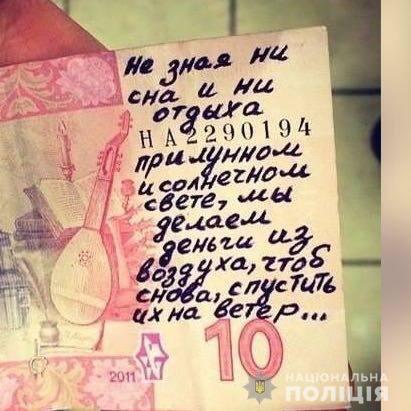 не зная ни
сна и ни
отдыха
НА2290194
при лунном
и солнечном
свете, мы
делаем
деньги из
воздуха, чтоб
снова, спустить
их на ветер...
2011
10
НАЦІОНАЛЬНА
ПОЛІЦІЯ